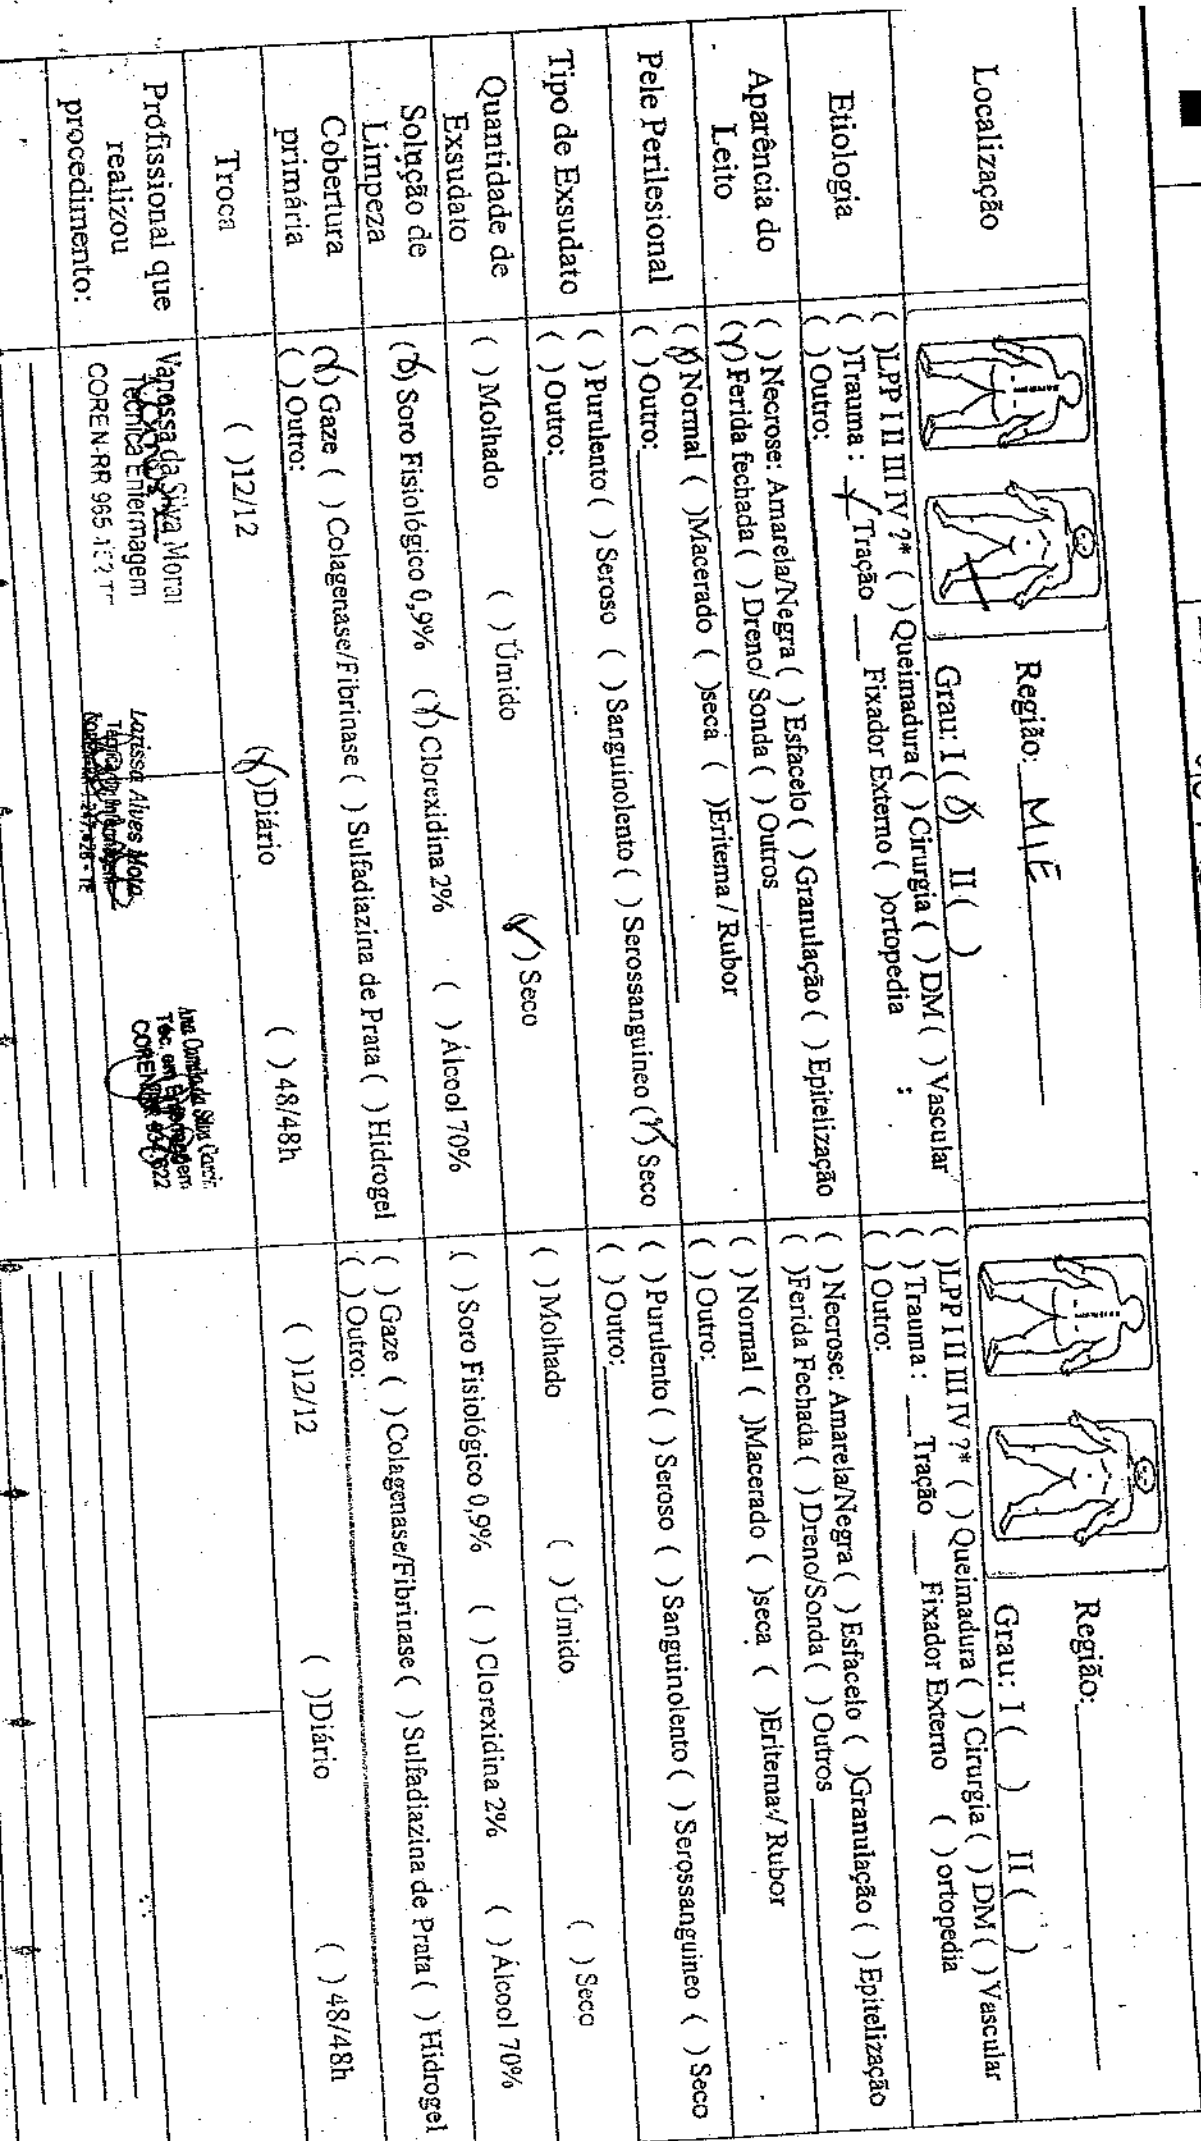 Localização
Região: MIE
Grau: I (X) II ( )
Região:
Grau: I ( ) II ( )
Etiologia
( )LPP I II III IV ?* ( ) Queimadura ( ) Cirurgia ( ) DM ( ) Vascular
( )Trauma : X Tração ___ Fixador Externo ( )ortopedia
( )Outro:
( )LPP I II III IV ?* ( ) Queimadura ( ) Cirurgia ( ) DM ( ) Vascular
( ) Trauma : ___ Tração ___ Fixador Externo ( ) ortopedia
( ) Outro:
Aparência do
Leito
( ) Necrose: Amarela/Negra ( ) Esfacelo ( ) Granulação ( ) Epitelização
(X) Ferida fechada ( ) Dreno/ Sonda ( ) Outros
( ) Necrose: Amarela/Negra ( ) Esfacelo ( )Granulação ( ) Epitelização
( )Ferida Fechada ( ) Dreno/Sonda ( ) Outros
Pele Perilesional
(X) Normal ( )Macerado ( )seca ( )Eritema / Rubor
( ) Outro:
( ) Normal ( )Macerado ( )seca ( )Eritema / Rubor
( ) Outro:
Tipo de Exsudato
( ) Purulento ( ) Seroso ( ) Sanguinolento ( ) Serossanguineo (X) Seco
( ) Outro:
( ) Purulento ( ) Seroso ( ) Sanguinolento ( ) Serossanguineo ( ) Seco
( ) Outro:
Quantidade de
Exsudato
( ) Molhado ( ) Úmido (X) Seco
( ) Molhado ( ) Úmido ( ) Seco
Solução de
Limpeza
(X) Soro Fisiológico 0,9% (X) Clorexidina 2% ( ) Álcool 70%
( ) Soro Fisiológico 0,9% ( ) Clorexidina 2% ( ) Álcool 70%
Cobertura
primária
(X) Gaze ( ) Colagenase/Fibrinase ( ) Sulfadiazina de Prata ( ) Hidrogel
( ) Outro:
( ) Gaze ( )Colagenase/Fibrinase ( ) Sulfadiazina de Prata ( ) Hidrogel
( ) Outro:
Troca
( )12/12 (X)Diário ( ) 48/48h
( )12/12 ( )Diário ( ) 48/48h
Profissional que
realizou
procedimento:
Vanessa da Silva Moral
Técnica Enfermagem
COREN-RR 965
Larissa Alves Mota
Ana
Téc. em Enfermagem
COREN